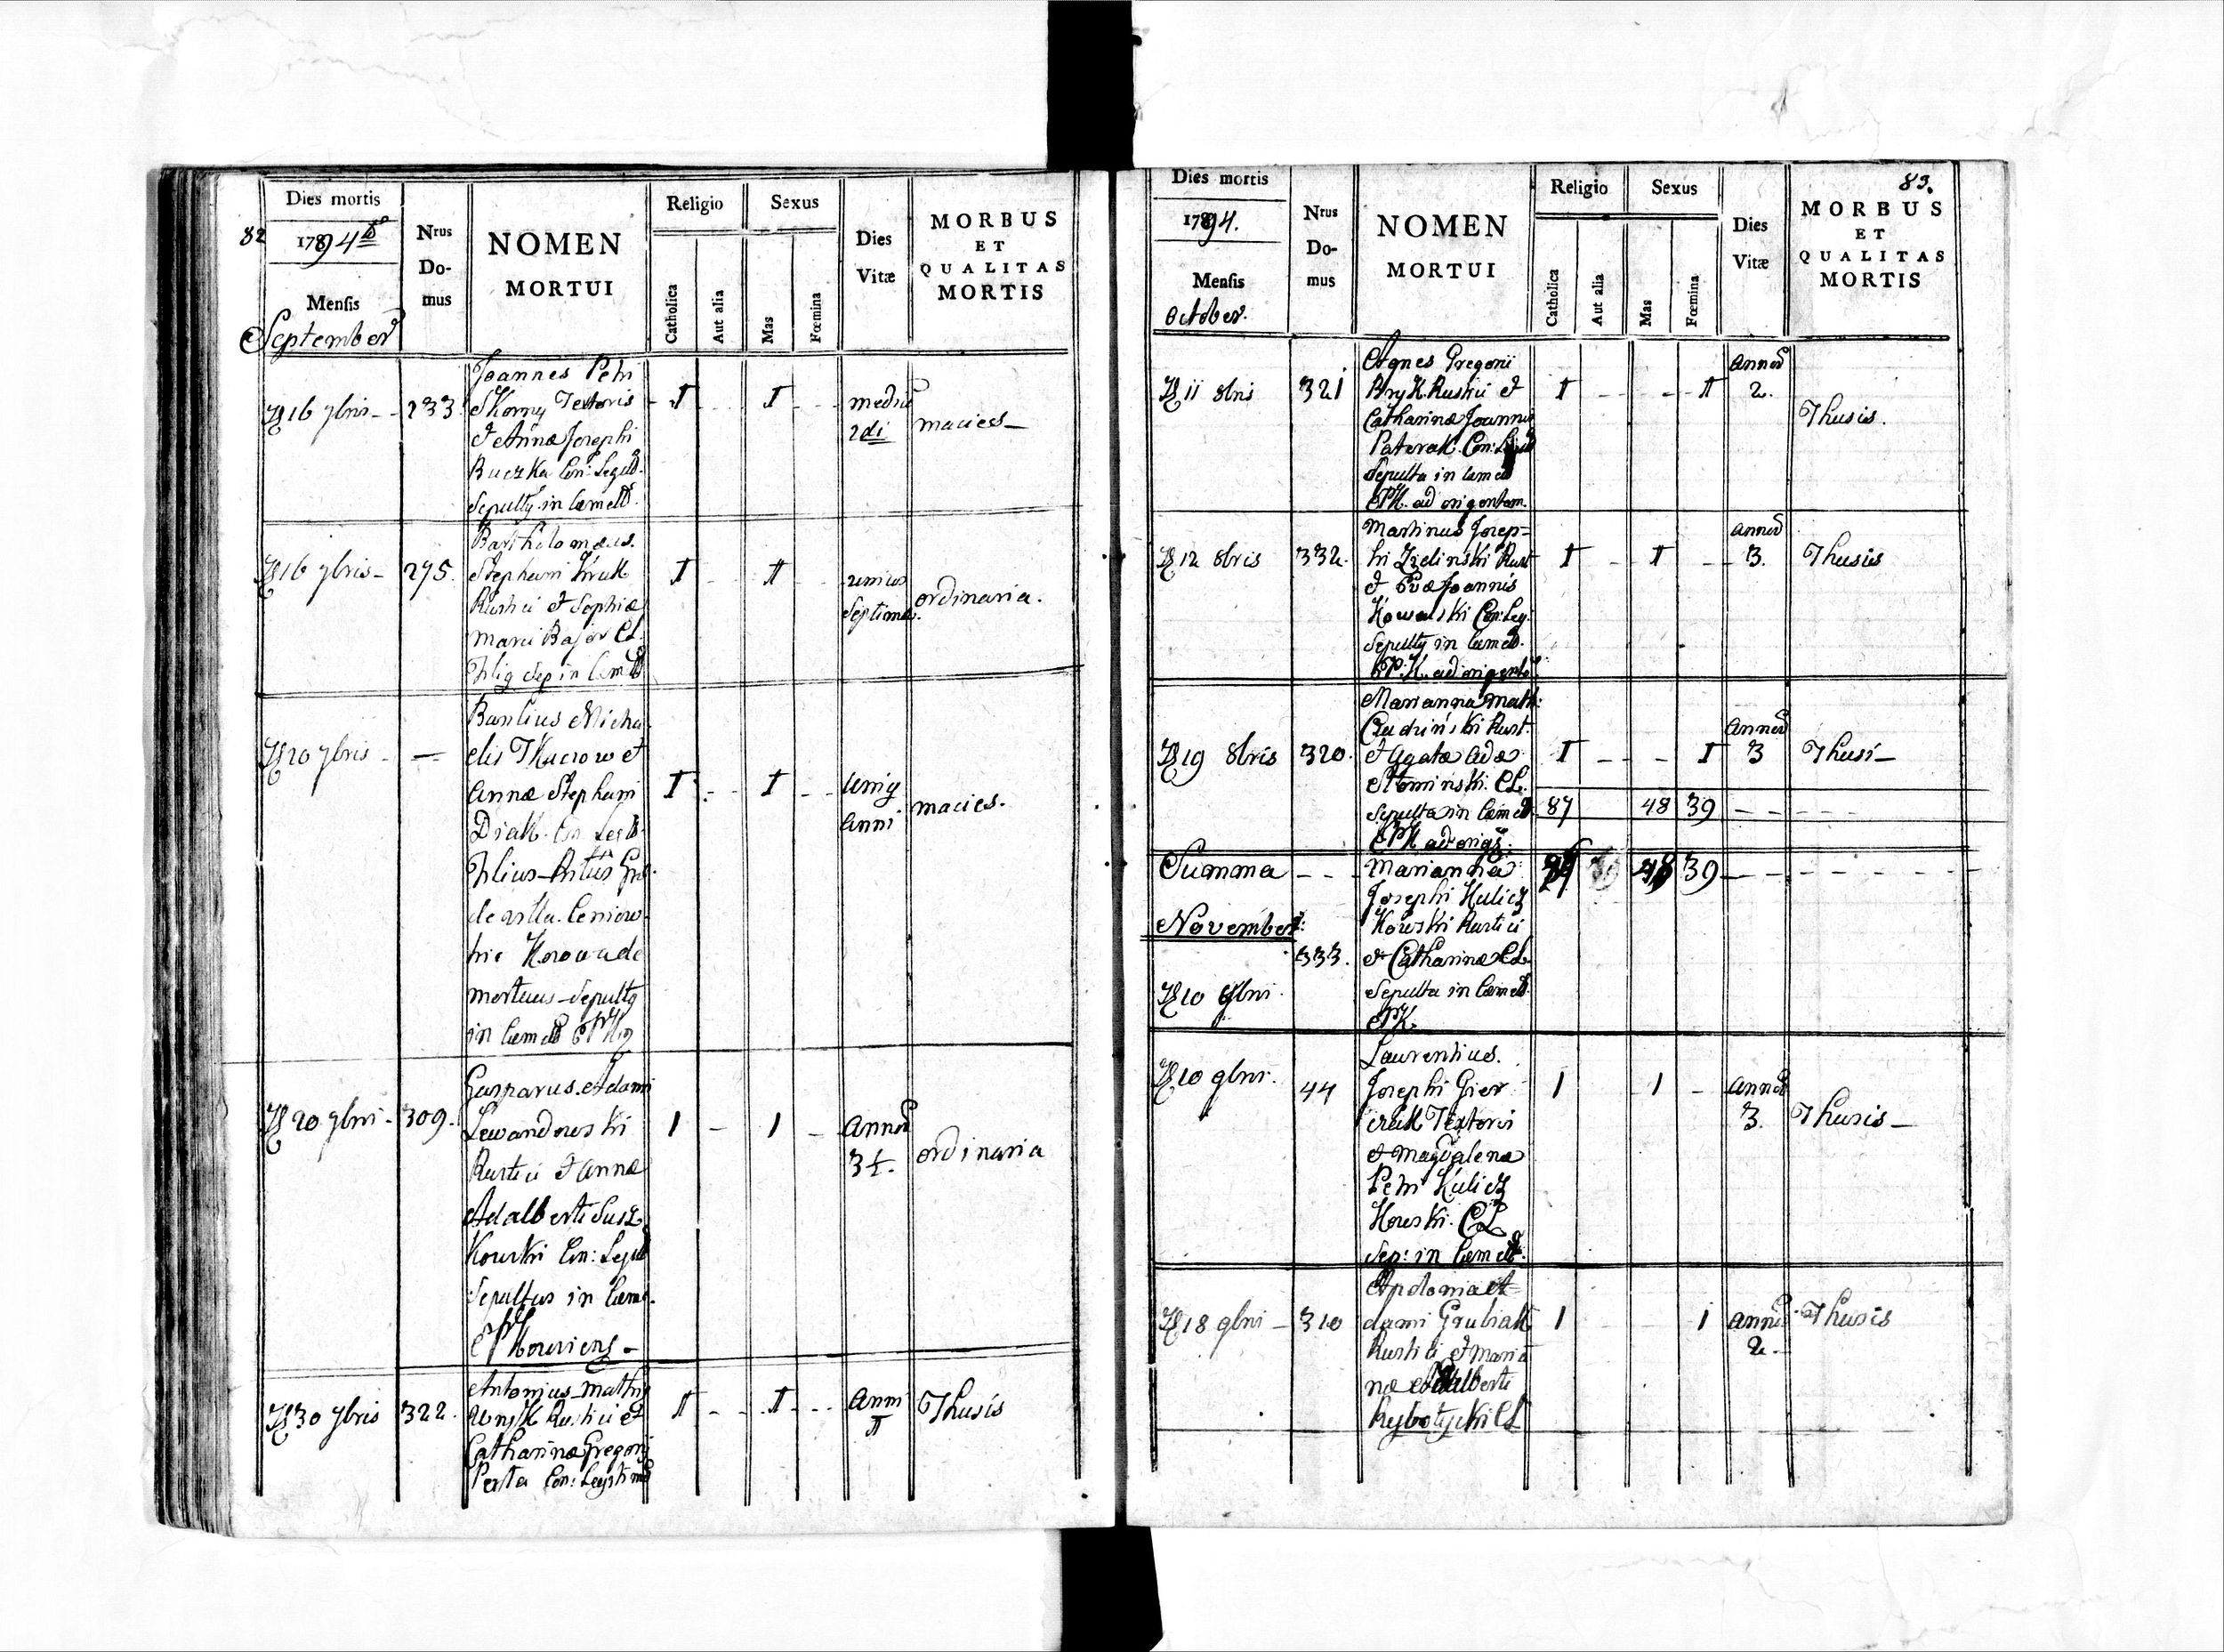 82
Dies mortis
1794to
Mensis
September
Nrus
Do-
mus
NOMEN
MORTUI
Religio
Catholica
Aut alia
Sexus
Mas
Fœmina
Dies
Vitæ
MORBUS
ET
QUALITAS
MORTIS
16 7bris - 233.
Joannes Petri
Skorny Textoris
et Annæ Josephi
Buczka Con: Legit.
Sepult9 in Cæmet.
I - - I - -
medii
2di
macies -
16 7bris - 295.
Bartholomæus.
Stephani Kruk
Rustici et Sophiæ
Marci Bajor CL.
Sep in Cæm
I - I - -
unius
Septima.
ordinaria.
20 7bris - —
Basilius Micha
elis Tkaczow et
Annæ Stephani
Diak. Con Legit.
filius - Ritus Gr.
de villa
hic Korow de
mortuus - Sepult9
in Cæmet EPK
I - - I - -
Uni9
Anni
macies.
20 7bri - 309.
Gasparus Adami
Lewandowski
Rustici et Annæ
Adalberti Susz
kowski Con: Legit
Sepultus in Cæme.
EPKoroviens -
1 - 1 -
Annor
3 1/2.
ordinaria
30 7bris 322.
Antonius Math
Rustici et
Catharinæ Gregorii
Perta Con: Legitim
I - - I - -
Anni
I
Thusis
83.
Dies mortis
1794.
Mensis
October.
Nrus
Do-
mus
NOMEN
MORTUI
Religio
Catholica
Aut alia
Sexus
Mas
Fœmina
Dies
Vitæ
MORBUS
ET
QUALITAS
MORTIS
11 8bris 321
Agnes Gregorii
Bryk Rustici et
Catharinæ Joannis
Paterak. Con: Legit
Sepulta in Cæmet
EPK. ad orientem.
I - - - - I
Annor
2.
Thusis.
12 8bris 332.
Martinus Josep=
hi Zielinski Rust
et Evæ Joannis
Kowalski Con: Leg.
Sepult9 in Cæmet.
EP.K. ad
I - I - -
Annor
3.
Thusis
19 8bris 320.
Marianna Math:
Rudzinski Rust.
et Agatæ Adæ
Slominski. CL.
Sepulta in Cæmet.
EPK ad
I - - - I
Annor
3
Thusi -
87 48 39 - - - - -
Summa - - -
48 39 - - - - - -
November:
10 9bri.
333.
Marianna
Josephi Kulicz
kowski Rustici
et Catharinæ CL.
Sepulta in Cæmet.
EPK.
10 9bri. 44
Laurentius.
Josephi Gier
czak Textoris
et Magdalenæ
Petri Kulicz
kowski. CL
Sep: in Cæmet.
1 1 -
Annor
3.
Thusis -
18 9bri - 310
Apolonia A=
dami Grubiak
Rustici et Maria
næ Adalberti
Rybotycki CL
1 - - 1
Annor
2.
Thusis